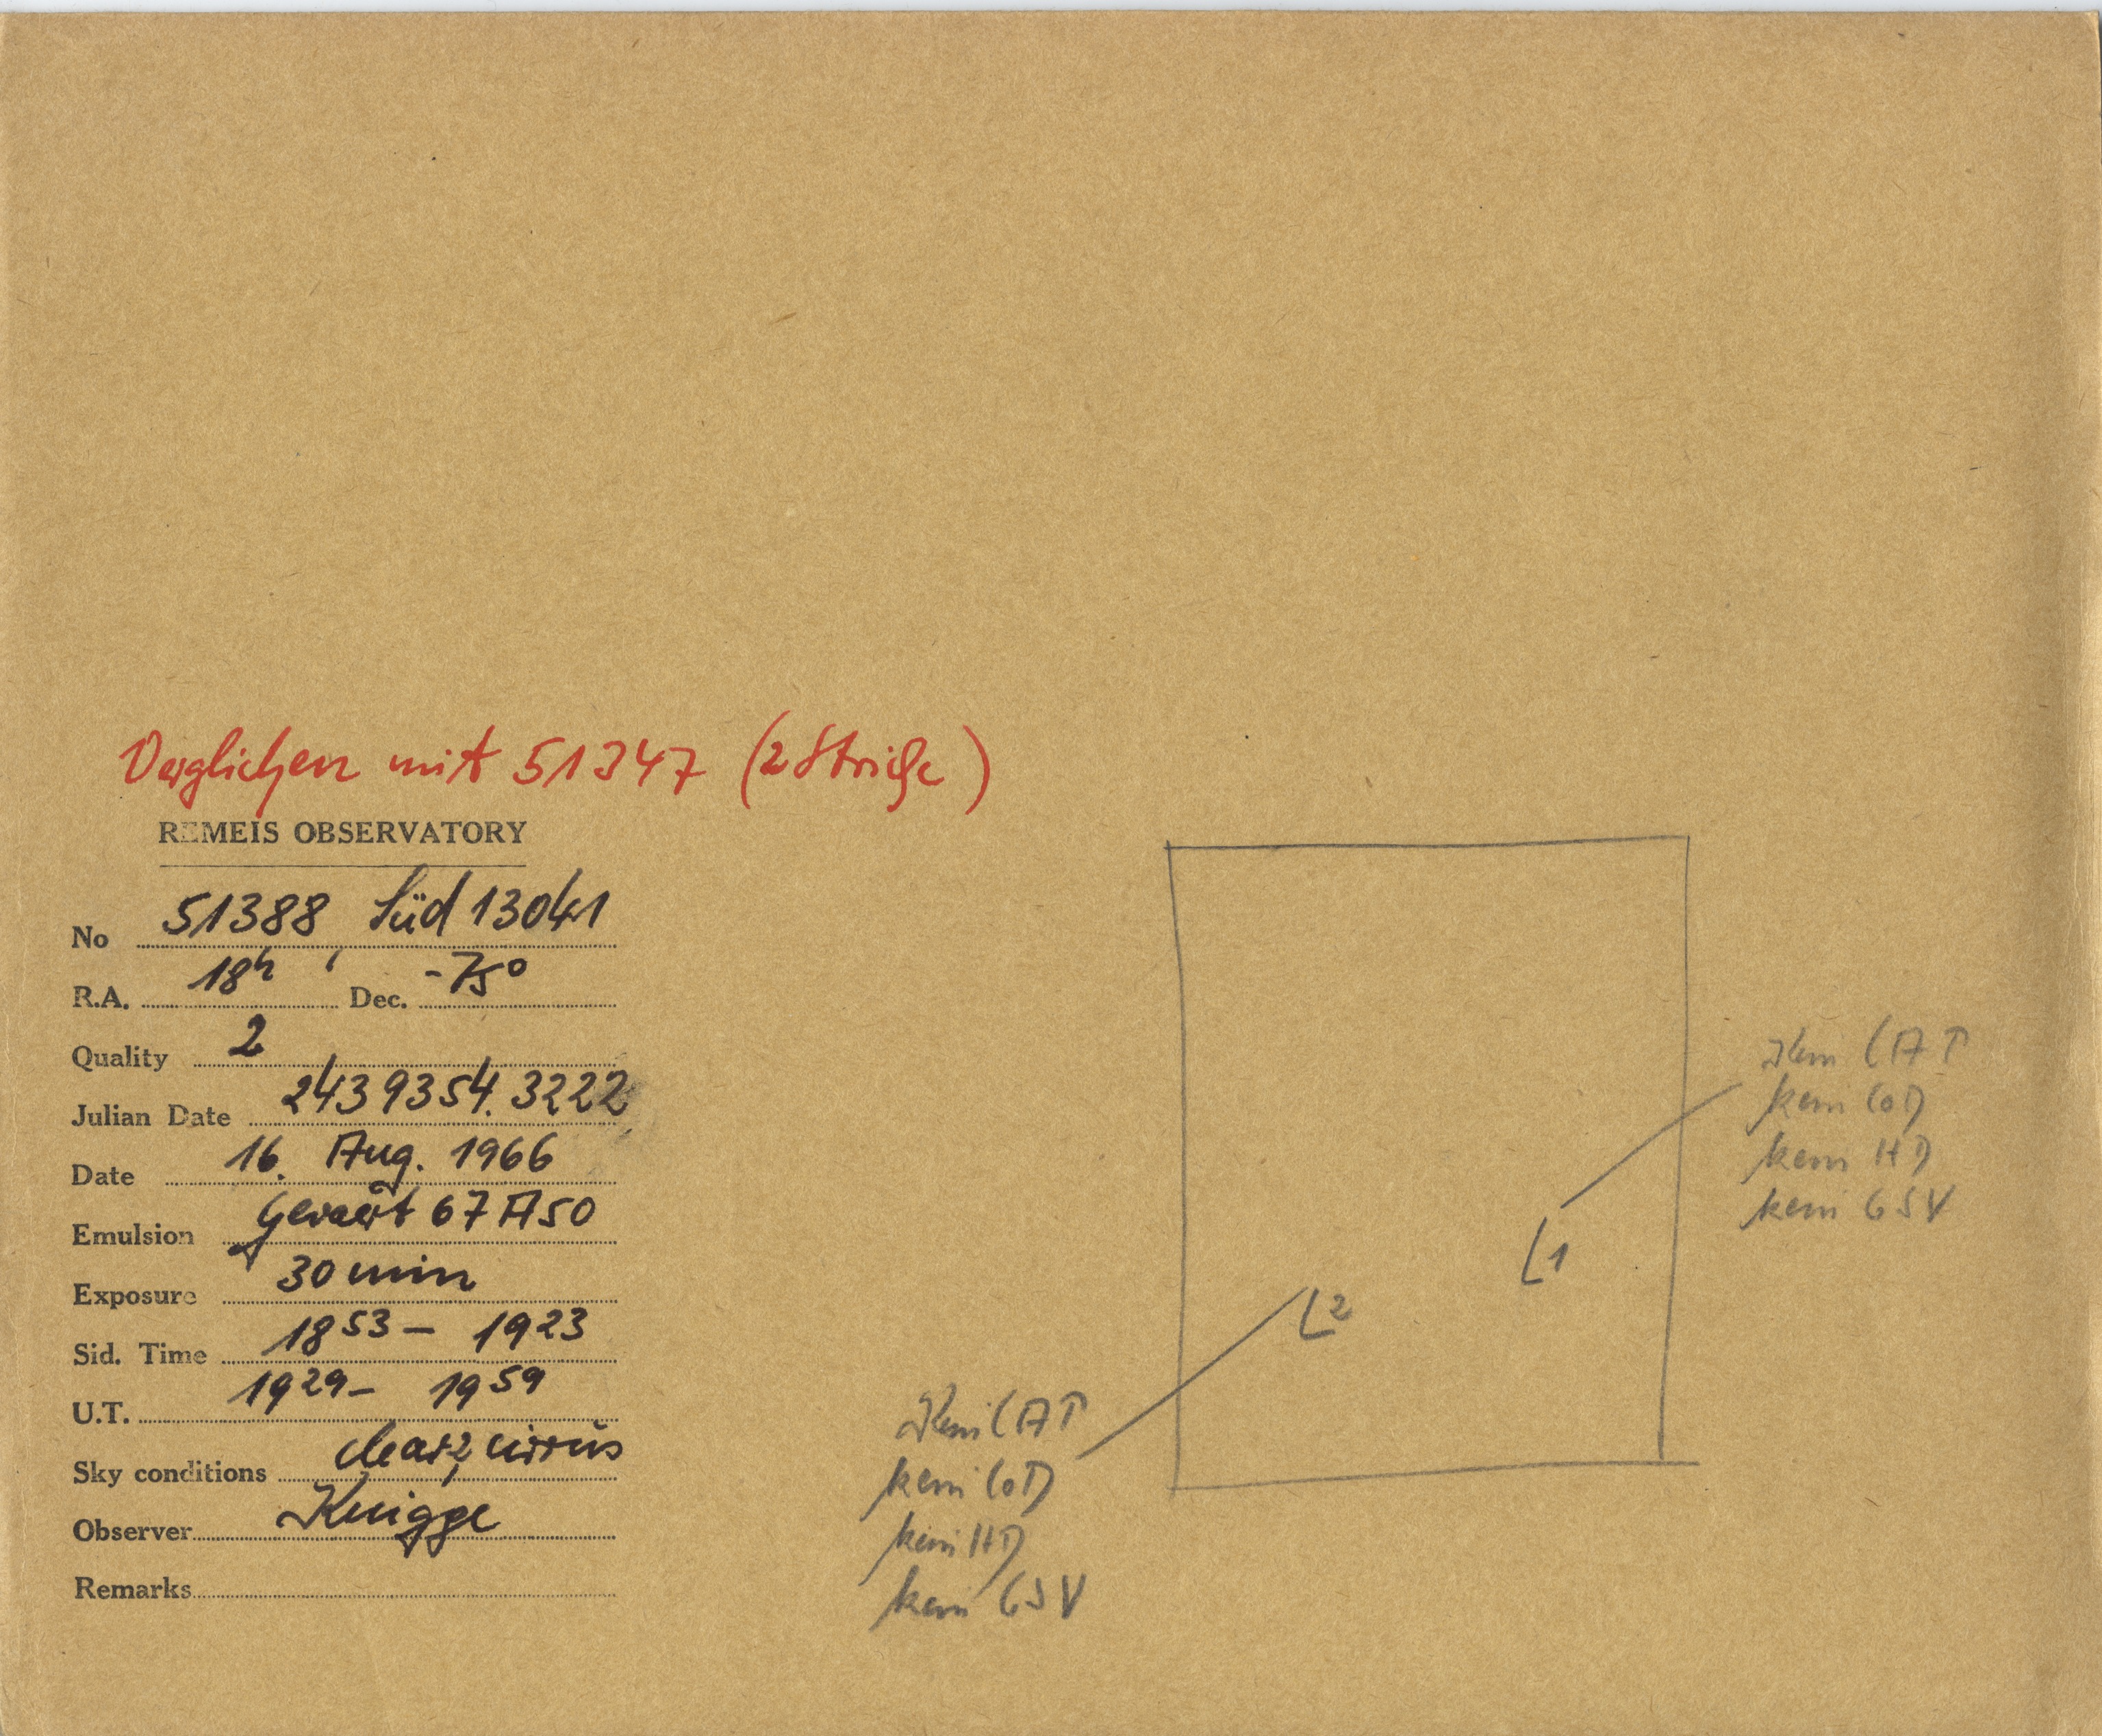 Verglichen mit 51347 (2 Striche)
REMEIS OBSERVATORY
No 51388 Süd 13041
R.A. 18h Dec. -75°
Quality 2
Julian Date 2439354.3222
Date 16. Aug. 1966
Emulsion Gevaert 67A50
Exposure 30 min
Sid. Time 18 53 – 19 23
U.T. 19 29 – 19 59
Sky conditions clear, cirrus
Observer Knigge
Remarks
Kein CAP
kein CoD
kein HD
kein GSV
L1
L2
Kein CAP
kein CoD
kein HD
kein GSV